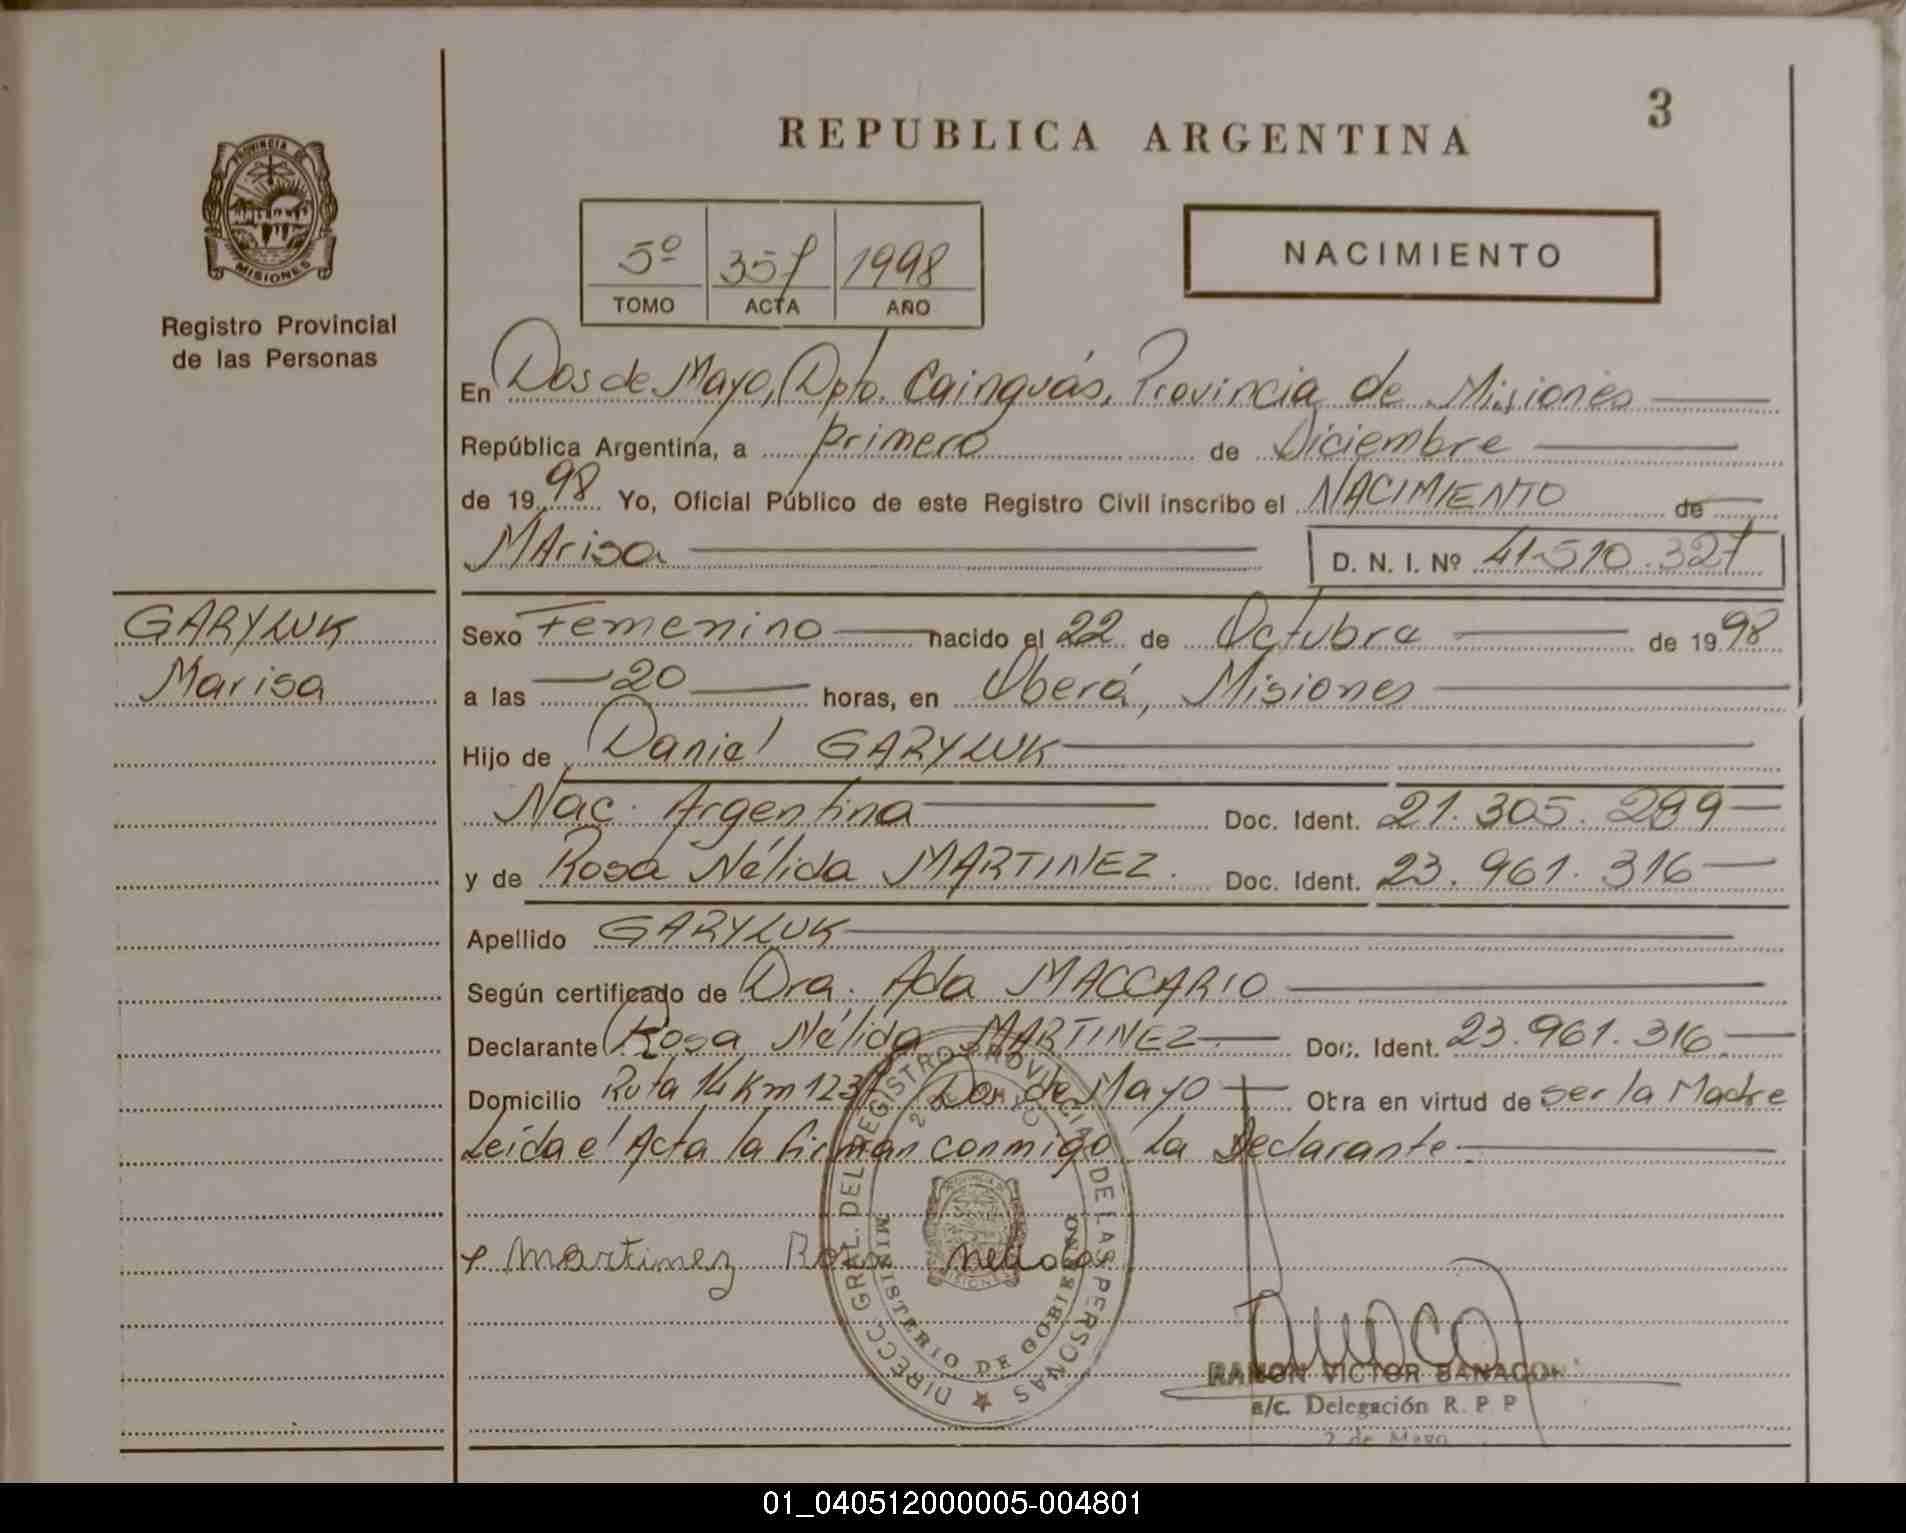 3
REPUBLICA ARGENTINA
PROVINCIA DE
MISIONES
Registro Provincial
de las Personas
5º 357 1998
TOMO ACTA AÑO
NACIMIENTO
En Dos de Mayo, Dpto. Cainguás, Provincia de Misiones
República Argentina, a primero de Diciembre
de 1998 Yo, Oficial Público de este Registro Civil inscribo el NACIMIENTO de
MArisa D. N. I. Nº 41.510.327
GARYLUK
Marisa
Sexo Femenino nacido el 22 de Octubre de 1998
a las 20 horas, en Oberá, Misiones
Hijo de Daniel GARYLUK
Nac. Argentina Doc. Ident. 21.305.299
y de Rosa Nélida MARTINEZ. Doc. Ident. 23.961.316
Apellido GARYLUK
Según certificado de Dra. Ada MACCARIO
Declarante Rosa Nélida MARTINEZ Doc. Ident. 23.961.316
Domicilio Ruta 14 Km 123 Dos de Mayo Obra en virtud de ser la Madre
Leída el Acta la firman conmigo La Declarante
Martinez Rosa nelida
DIRECC. GRAL. DEL REGISTRO PROVINCIAL DE LAS PERSONAS
MINISTERIO DE GOBIERNO
RAMON VICTOR BANACOR
a/c. Delegación R. P P
2 de Mayo
01_040512000005-004801